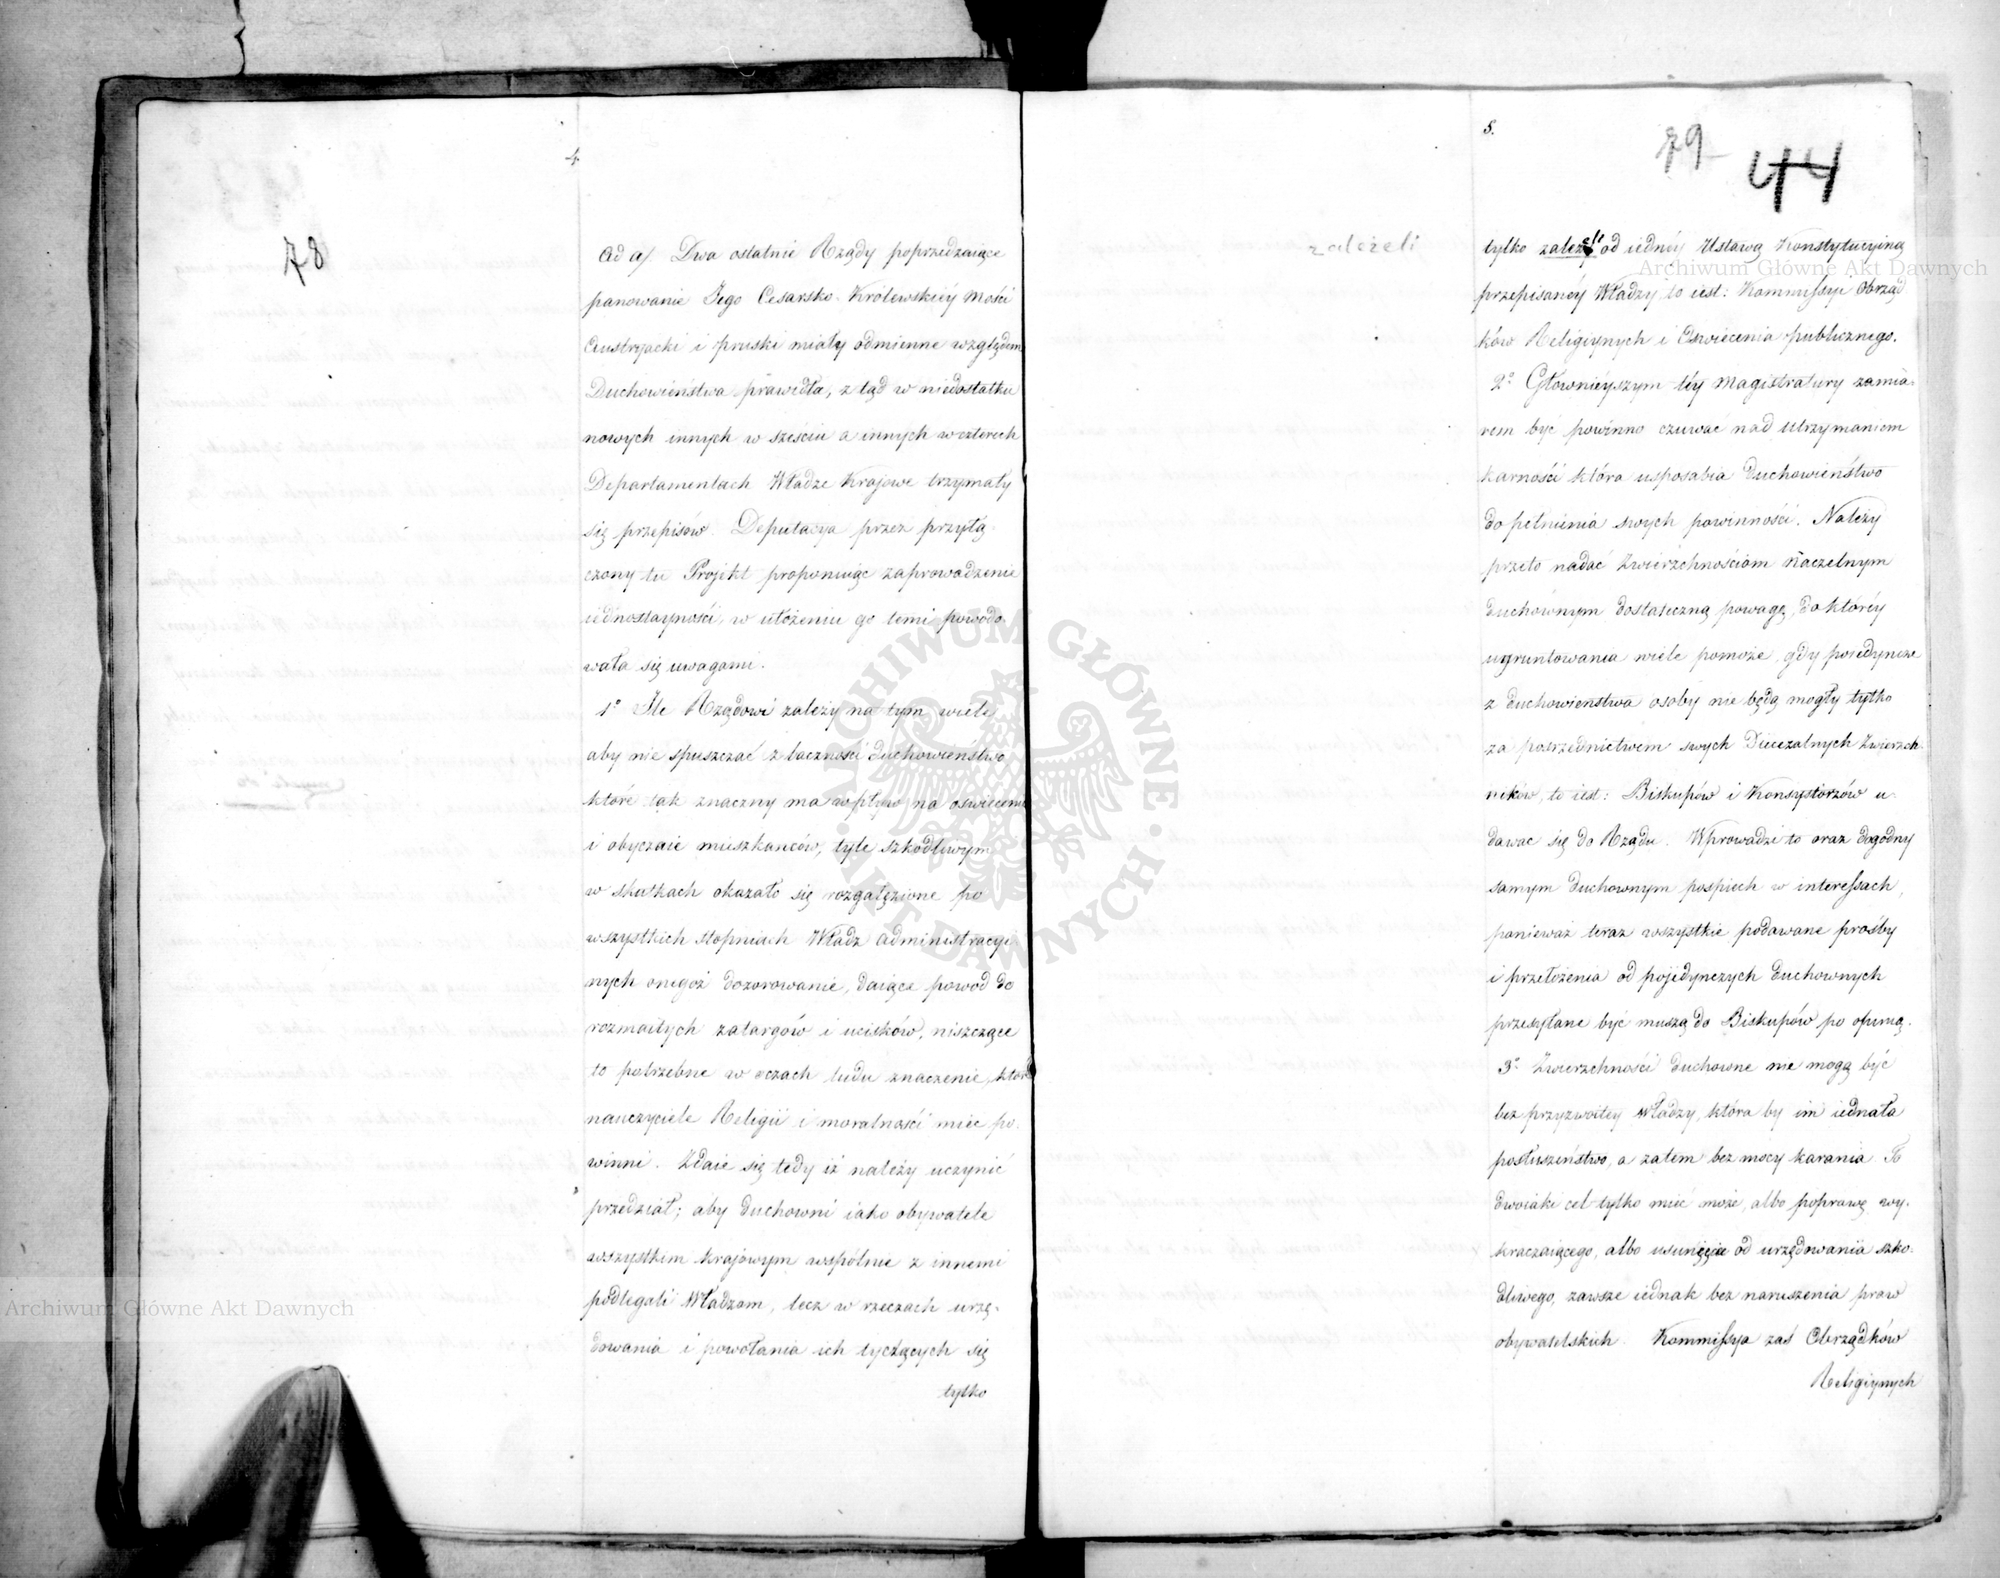 4
78
Ad a/ Dwa ostatnie Rządy poprzedzaiące
panowanie Jego Cesarsko-Królewskiéy Mości
Austryacki i pruski miały odmienne względem
Duchowieństwa prawidła, z tąd w niedostatku
nowych innych w sześciu a innych w czterech
Departamentach Władze Krajowe trzymały
się przepisów. Deputacya przez przyłą-
czony tu Projekt proponuiąc zaprowadzenie
iednostayności, w ułożeniu go temi powodo-
wała się uwagami.
1° Ile Rządowi zależy na tym wiele
aby nie spuszczać z baczności Duchowieństwo
które tak znaczny ma wpływ na oswiecenie
i obyczaie mieszkańców, tyle szkodliwym
w skutkach okazało się rozgałęzione po
wszystkich stopniach Władz administracyi-
nych onegoż dozorowanie, daiące powód do
rozmaitych zatargów i ucisków, niszczące
to potrzebne w oczach ludu znaczenie, które
nauczyciele Religii i moralności mieć po-
winni. Zdaie się tedy iż należy uczynić
przedział; aby duchowni iako obywatele
wszystkim krajowym wspólnie z innemi
podlegali Władzom, lecz w rzeczach urzę-
dowania i powołania ich tyczących się
tylko
5.
79
44
zależeli
tylko zależeli od iednéy Ustawą Konstytucyiną
przepisanéy Władzy to iest: Kommissyi Obrząd
ków Religiynych i Oswiecenia publicznego.
2° Głownieyszym téy Magistratury zamia-
rem być powinno czuwać nad utrzymaniem
karności która usposabia Duchowieństwo
do pełnienia swych powinności. Należy
przeto nadać Zwierzchnościom naczelnym
duchównym dostateczną powagę, do któréy
ugruntowania wiele pomoże, gdy poiedyncze
z duchowieństwa osoby nie będą mogły tylko
za pośrednictwem swych Diecezalnych Zwierzch-
ników, to iest: Biskupów i Konsystorzów u-
dawac się do Rządu. Wprowadzi to oraz dogodny
samym duchownym pospiech w interessach,
ponieważ teraz wszystkie podawane prośby
i przełożenia od pojedynczych duchownych
przesyłane być muszą do Biskupów po opinią.
3° Zwierzchności duchowne nie mogą być
bez przyzwoitey władzy, która by im iednała
posłuszeństwo, a zatem bez mocy karania. To
dwoiaki cel tylko mieć może, albo poprawę wy-
kraczaiącego, albo usunięcie od urzędowania szko-
dliwego, zawsze iednak bez naruszenia praw
obywatelskich. Kommissya zaś Obrządków
Religiynych
Archiwum Główne Akt Dawnych
Archiwum Główne Akt Dawnych
ARCHIWUM GŁÓWNE AKT DAWNYCH